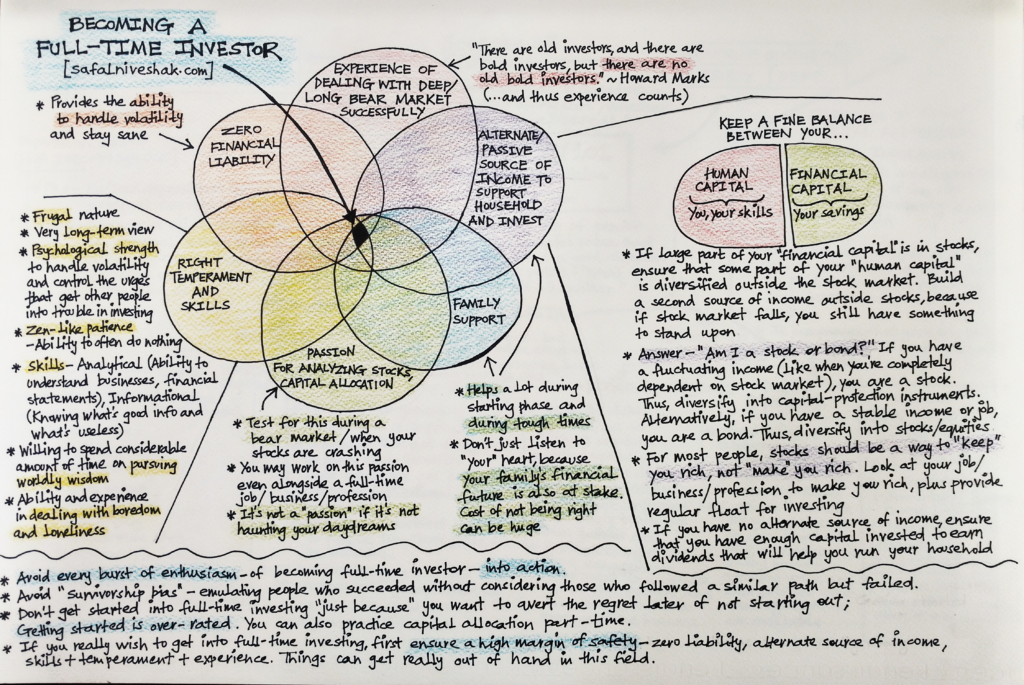 BECOMING A
FULL-TIME INVESTOR
[safalniveshak.com]
* Provides the ability
to handle volatility
and stay sane
ZERO
FINANCIAL
LIABILITY
EXPERIENCE OF
DEALING WITH DEEP/
LONG BEAR MARKET
SUCCESSFULLY
"There are old investors, and there are
bold investors, but there are no
old bold investors." ~ Howard Marks
(...and thus experience counts)
ALTERNATE/
PASSIVE
SOURCE OF
INCOME TO
SUPPORT
HOUSEHOLD
AND INVEST
RIGHT
TEMPERAMENT
AND
SKILLS
FAMILY
SUPPORT
PASSION
FOR ANALYZING STOCKS,
CAPITAL ALLOCATION
* Frugal nature
* Very long-term view
* Psychological strength
to handle volatility
and control the urges
that get other people
into trouble in investing
* Zen-like patience
- Ability to often do nothing
* Skills - Analytical (Ability to
understand businesses, financial
statements), Informational
(Knowing what's good info and
what's useless)
* Willing to spend considerable
amount of time on pursuing
worldly wisdom
* Ability and experience
in dealing with boredom
and loneliness
* Test for this during a
bear market/when your
stocks are crashing
* You may work on this passion
even alongside a full-time
job/business/profession
* It's not a "passion" if it's not
haunting your daydreams
* Helps a lot during
starting phase and
during tough times
* Don't just listen to
"your" heart, because
your family's financial
future is also at stake.
Cost of not being right
can be huge
KEEP A FINE BALANCE
BETWEEN YOUR...
HUMAN
CAPITAL
You, your skills
FINANCIAL
CAPITAL
Your savings
* If large part of your "financial capital" is in stocks,
ensure that some part of your "human capital"
is diversified outside the stock market. Build
a second source of income outside stocks, because
if stock market falls, you still have something
to stand upon
* Answer - "Am I a stock or bond?" If you have
a fluctuating income (like when you're completely
dependent on stock market), you are a stock.
Thus, diversify into capital-protection instruments.
Alternatively, if you have a stable income or job,
you are a bond. Thus, diversify into stocks/equities
* For most people, stocks should be a way to "keep"
you rich, not "make" you rich. Look at your job/
business/profession to make you rich, plus provide
regular float for investing
* If you have no alternate source of income, ensure
that you have enough capital invested to earn
dividends that will help you run your household
* Avoid every burst of enthusiasm - of becoming full-time investor - into action.
* Avoid "Survivorship bias" - emulating people who succeeded without considering those who followed a similar path but failed.
* Don't get started into full-time investing "just because" you want to avert the regret later of not starting out;
Getting started is over-rated. You can also practice capital allocation part-time.
* If you really wish to get into full-time investing, first ensure a high margin of safety - zero liability, alternate source of income,
skills + temperament + experience. Things can get really out of hand in this field.